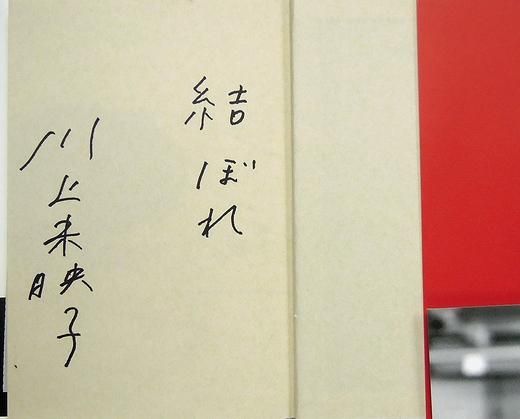 結ぼれ
川上未映子